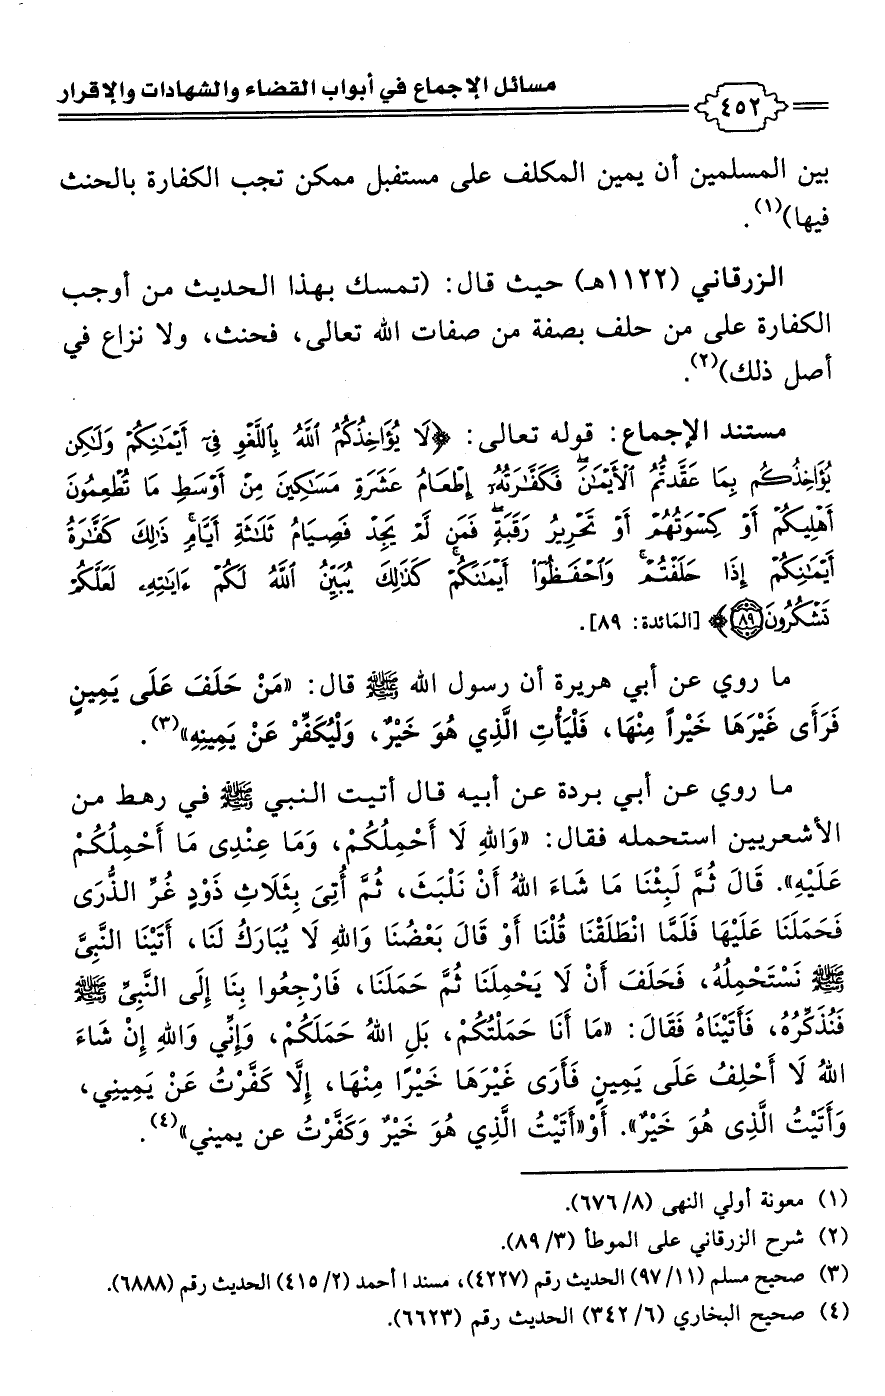 مسائل الإجماع في أبواب القضاء والشهادات والإقرار
٤٥٢
بين المسلمين أن يمين المكلف على مستفبل ممكن تجب الكفارة بالحنث
فيها)(١).
الزرقاني (١١٢٢هـ) حيث قال: (تمسك بهذا الحديث من أوجب
الكفارة على من حلف بصفة من صفات الله تعالى، فحنث، ولا نزاع في
أصل ذلك)(٢).
مستند الإجماع: قوله تعالى: ﴿لَا يُؤَاخِذُكُمُ ٱللَّهُ بِٱللَّغْوِ فِىٓ أَيْمَٰنِكُمْ وَلَٰكِن
يُؤَاخِذُكُم بِمَا عَقَّدتُّمُ ٱلْأَيْمَٰنَۖ فَكَفَّٰرَتُهُۥٓ إِطْعَامُ عَشَرَةِ مَسَٰكِينَ مِنْ أَوْسَطِ مَا تُطْعِمُونَ
أَهْلِيكُمْ أَوْ كِسْوَتُهُمْ أَوْ تَحْرِيرُ رَقَبَةٍۖ فَمَن لَّمْ يَجِدْ فَصِيَامُ ثَلَٰثَةِ أَيَّامٍۚ ذَٰلِكَ كَفَّٰرَةُ
أَيْمَٰنِكُمْ إِذَا حَلَفْتُمْۚ وَٱحْفَظُوٓا۟ أَيْمَٰنَكُمْۚ كَذَٰلِكَ يُبَيِّنُ ٱللَّهُ لَكُمْ ءَايَٰتِهِۦ لَعَلَّكُمْ
تَشْكُرُونَ ٨٩﴾ [المَائدة: ٨٩].
ما روي عن أبي هريرة أن رسول الله ﷺ قال: «مَنْ حَلَفَ عَلَى يَمِينٍ
فَرَأَى غَيْرَهَا خَيْراً مِنْهَا، فَلْيَأْتِ الَّذِي هُوَ خَيْرٌ، وَلْيُكَفِّرْ عَنْ يَمِينِهِ»(٣).
ما روي عن أبي بردة عن أبيه قال أتيت النبي ﷺ في رهط من
الأشعريين استحمله فقال: «وَاللهِ لَا أَحْمِلُكُمْ، وَمَا عِنْدِى مَا أَحْمِلُكُمْ
عَلَيْهِ». قَالَ ثُمَّ لَبِثْنَا مَا شَاءَ اللهُ أَنْ نَلْبَثَ، ثُمَّ أُتِىَ بِثَلَاثِ ذَوْدٍ غُرِّ الذُّرَى
فَحَمَلَنَا عَلَيْهَا فَلَمَّا انْطَلَقْنَا قُلْنَا أَوْ قَالَ بَعْضُنَا وَاللهِ لَا يُبَارَكُ لَنَا، أَتَيْنَا النَّبِىَّ
ﷺ نَسْتَحْمِلُهُ، فَحَلَفَ أَنْ لَا يَحْمِلَنَا ثُمَّ حَمَلَنَا، فَارْجِعُوا بِنَا إِلَى النَّبِىِّ ﷺ
فَنُذَكِّرُهُ، فَأَتَيْنَاهُ فَقَالَ: «مَا أَنَا حَمَلْتُكُمْ، بَلِ اللهُ حَمَلَكُمْ، وَإِنِّي وَاللهِ إِنْ شَاءَ
اللهُ لَا أَحْلِفُ عَلَى يَمِينٍ فَأَرَى غَيْرَهَا خَيْرًا مِنْهَا، إِلَّا كَفَّرْتُ عَنْ يَمِينِي،
وَأَتَيْتُ الَّذِى هُوَ خَيْرٌ». أَوْ«أَتَيْتُ الَّذِي هُوَ خَيْرٌ وَكَفَّرْتُ عن يميني»(٤).
(١) معونة أولي النهى (٨/ ٦٧٦).
(٢) شرح الزرقاني على الموطأ (٣/ ٨٩).
(٣) صحيح مسلم (١١/ ٩٧) الحديث رقم (٤٢٢٧)، مسند ا أحمد (٢/ ٤١٥) الحديث رقم (٦٨٨٨).
(٤) صحيح البخاري (٦/ ٣٤٢) الحديث رقم (٦٦٢٣).